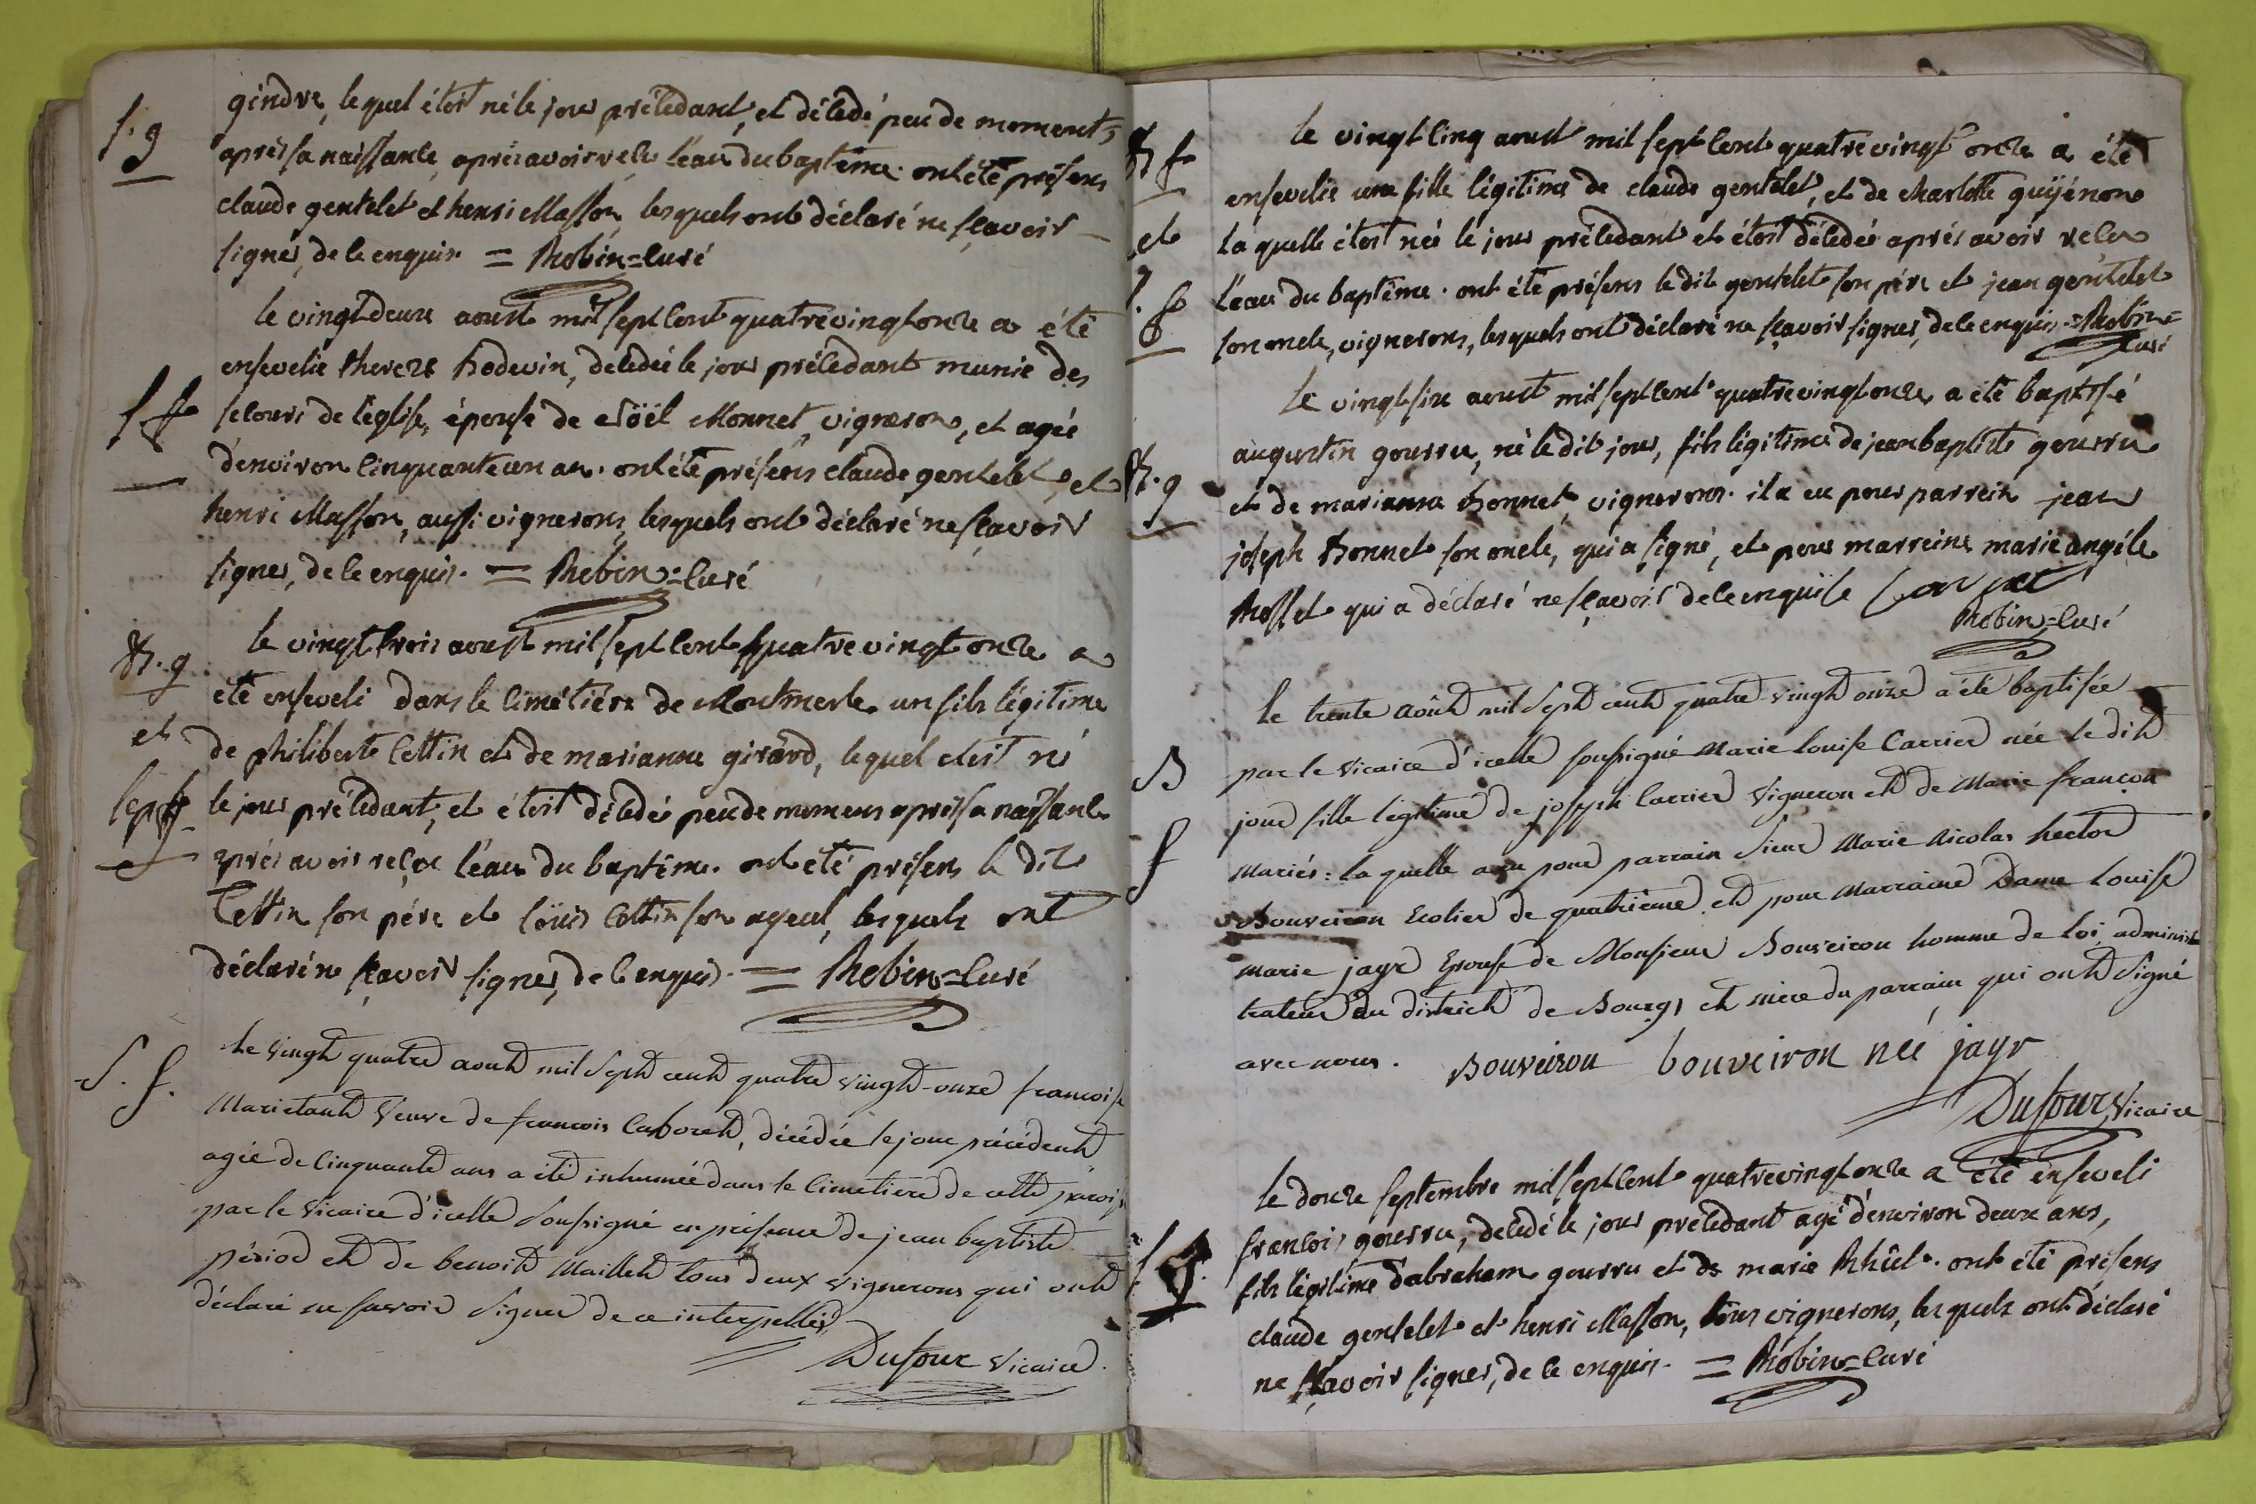 s. g
gindre, lequel étoit né le jour précédant, et décédé peu de moments
après sa naissance, après avoir recu l'eau du baptême. ont été présens
claude gentelet et henri Masson, lesquels ont déclaré ne sçavoir
signer, de ce enquis. = Robin = Curé
le vingt deux aoust mil sept cent quatre vingt onze a été
ensevelie thereze Bodevin, décédée le jour précédant munie des
s f
secours de l'église, épouse de Noël Monnet, vigneron, et agée
d'environ cinquante un an. ont été présens claude gentelet, et
henri Masson, aussi vignerons, lesquels ont déclaré ne sçavoir
signer, de ce enquis. = Robin = Curé
B. g
et
sep g
le vingt trois aoust mil sept cent quatre vingt onze a
été enseveli dans le cimétière de Montmerle un fils légitime
de philibert Cottin et de marianne girard, lequel étoit né
le jour précédant, et étoit décédé peu de momens après sa naissance
après avoir reçu l'eau du baptême. ont été présens le dit
Cottin son père et Loüis Cottin son ayeul, lesquels ont
déclaré ne sçavoir signer, de ce enquis. = Robin = Curé
S. f.
Le vingt quatre aout mil sept cent quatre vingt-onze francoise
Marietant Veuve de francois Caboret, décédée le jour précédent
agée de Cinquante ans a été inhumée dans le Cimetiere de cette paroisse
par le Vicaire d'icelle Soussigné en présence de jean baptiste
périod et de benoit Maillet tous deux vignerons qui ont
déclaré ne savoir Signer de ce interpellés
Dufour Vicaire.
B f
et
s. f
le vingt cinq aoust mil sept cent quatre vingt onze a été
ensevelie une fille légitime de claude gentelet, et de charlotte guyénon
la quelle étoit née le jour précédant et étoit décédée après avoir recu
l'eau du baptême. ont été présens le dit gentelet son père et jean gentelet
son oncle, vignerons, lesquels ont déclaré ne sçavoir signer, de ce enquis. = Robin =
Curé
B. g
le vingt six aoust mil sept cent quatre vingt onze, a été baptisé
augustin gourru, né le dit jour, fils légitime de jean baptiste gourru
et de marianne Bonnet vignerons. il a eu pour parrein jean
joseph Bonnet son oncle, qui a signé, et pour marreine marie angéle
Rosset qui a déclaré ne sçavoir de ce enquise
Robin = Curé
B
f
Le trente août mil Sept cent quatre-vingt onze a été baptisée
par le Vicaire d'icelle soussigné Marie Louise Carrier née le dit
jour fille légitime de joseph Carrier Vigneron et de Marie françon
Mariés : la quelle a eu pour parrain Sieur Marie Nicolas hector
Bouveiron Ecolier de quatrième, et pour Marraine Dame Louise
Marie jayr Epouse de Monsieur Bouveiron homme de loi, adminis
trateur du district de Bourg, et mère du parrain qui ont Signé
avec nous. Bouveirou bouveiron née jayr
Dufour Vicaire
s g.
le douze septembre mil sept cent quatre vingt onze a été enseveli
françois gourru, décédé le jour précédant agé d'environ deux ans,
fils légitime d'abraham gourru et de marie Rhûet. ont été présens
claude gentelet et henri Masson, tous vignerons, lesquels ont déclaré
ne sçavoir signer, de ce enquis. = Robin = Curé